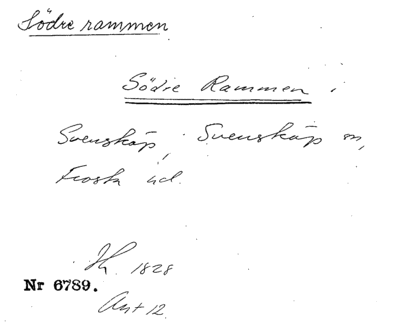 Södre rammen
Södre Rammen i
Svenskåp, Svenskåp sn,
Frosta hd.
1828
Nr 6789.
Ant 12